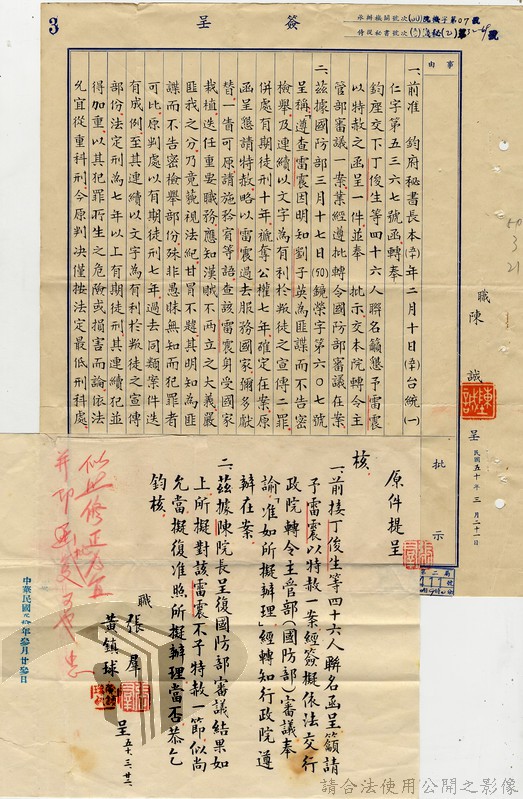 簽呈
3
承辦機關號次(50)院機字第07號
侍從秘書號次
事由
一、前准　鈞府秘書長本(幸)年二月十日(幸)台統(一)
仁字第五三六七號函轉奉
鈞座交下丁俊生等四十六人聯名籲懇予雷震
以特赦之函呈一件並奉　批示交本院轉令主
管部審議一案業經遵批轉令國防部審議在案
二、茲據國防部三月十七日(50)鏡榮字第六〇七號
呈稱「遵查雷震因明知劉子英為匪諜而不告密
檢舉及連續以文字為有利於叛徒之宣傳二罪
併處有期徒刑十年褫奪公權七年確定在案原
函呈懇請特赦略以雷震過去服務國家彌多獻
替一眚可原請施矜宥等語查該雷震身受國家
栽植迭任重要職務應知漢賊不兩立之大義嚴
匪我之分乃竟藐視法紀甘冒不韙其明知為匪
諜而不告密檢舉部份殊非愚昧無知而犯罪者
可比原判處以有期徒刑七年過去同類案件迭
有成例至其連續以文字為有利於叛徒之宣傳
部份法定刑為七年以上有期徒刑其連續犯並
得加重以其犯罪所生之危險或損害而論依法
允宜從重科刑今原判決僅按法定最低刑科處
職陳　誠
呈
民國五十年三月二十一日
批示
50
3
21
原件提呈
核。
一、前接丁俊生等四十六人聯名函呈籲請
予雷震以特赦一案經簽擬依法交行
政院轉令主管部(國防部)審議奉
諭「准如所擬辦理」經轉知行政院遵
辦在案
二、茲據陳院長呈復國防部審議結果如
上所擬對該雷震不予特赦一節似尚
允當擬復准照所擬辦理當否恭乞
鈞核。
職 張羣
黃鎮球
呈 五十、三、廿二
中華民國 年參月廿參日
請合法使用公開之影像